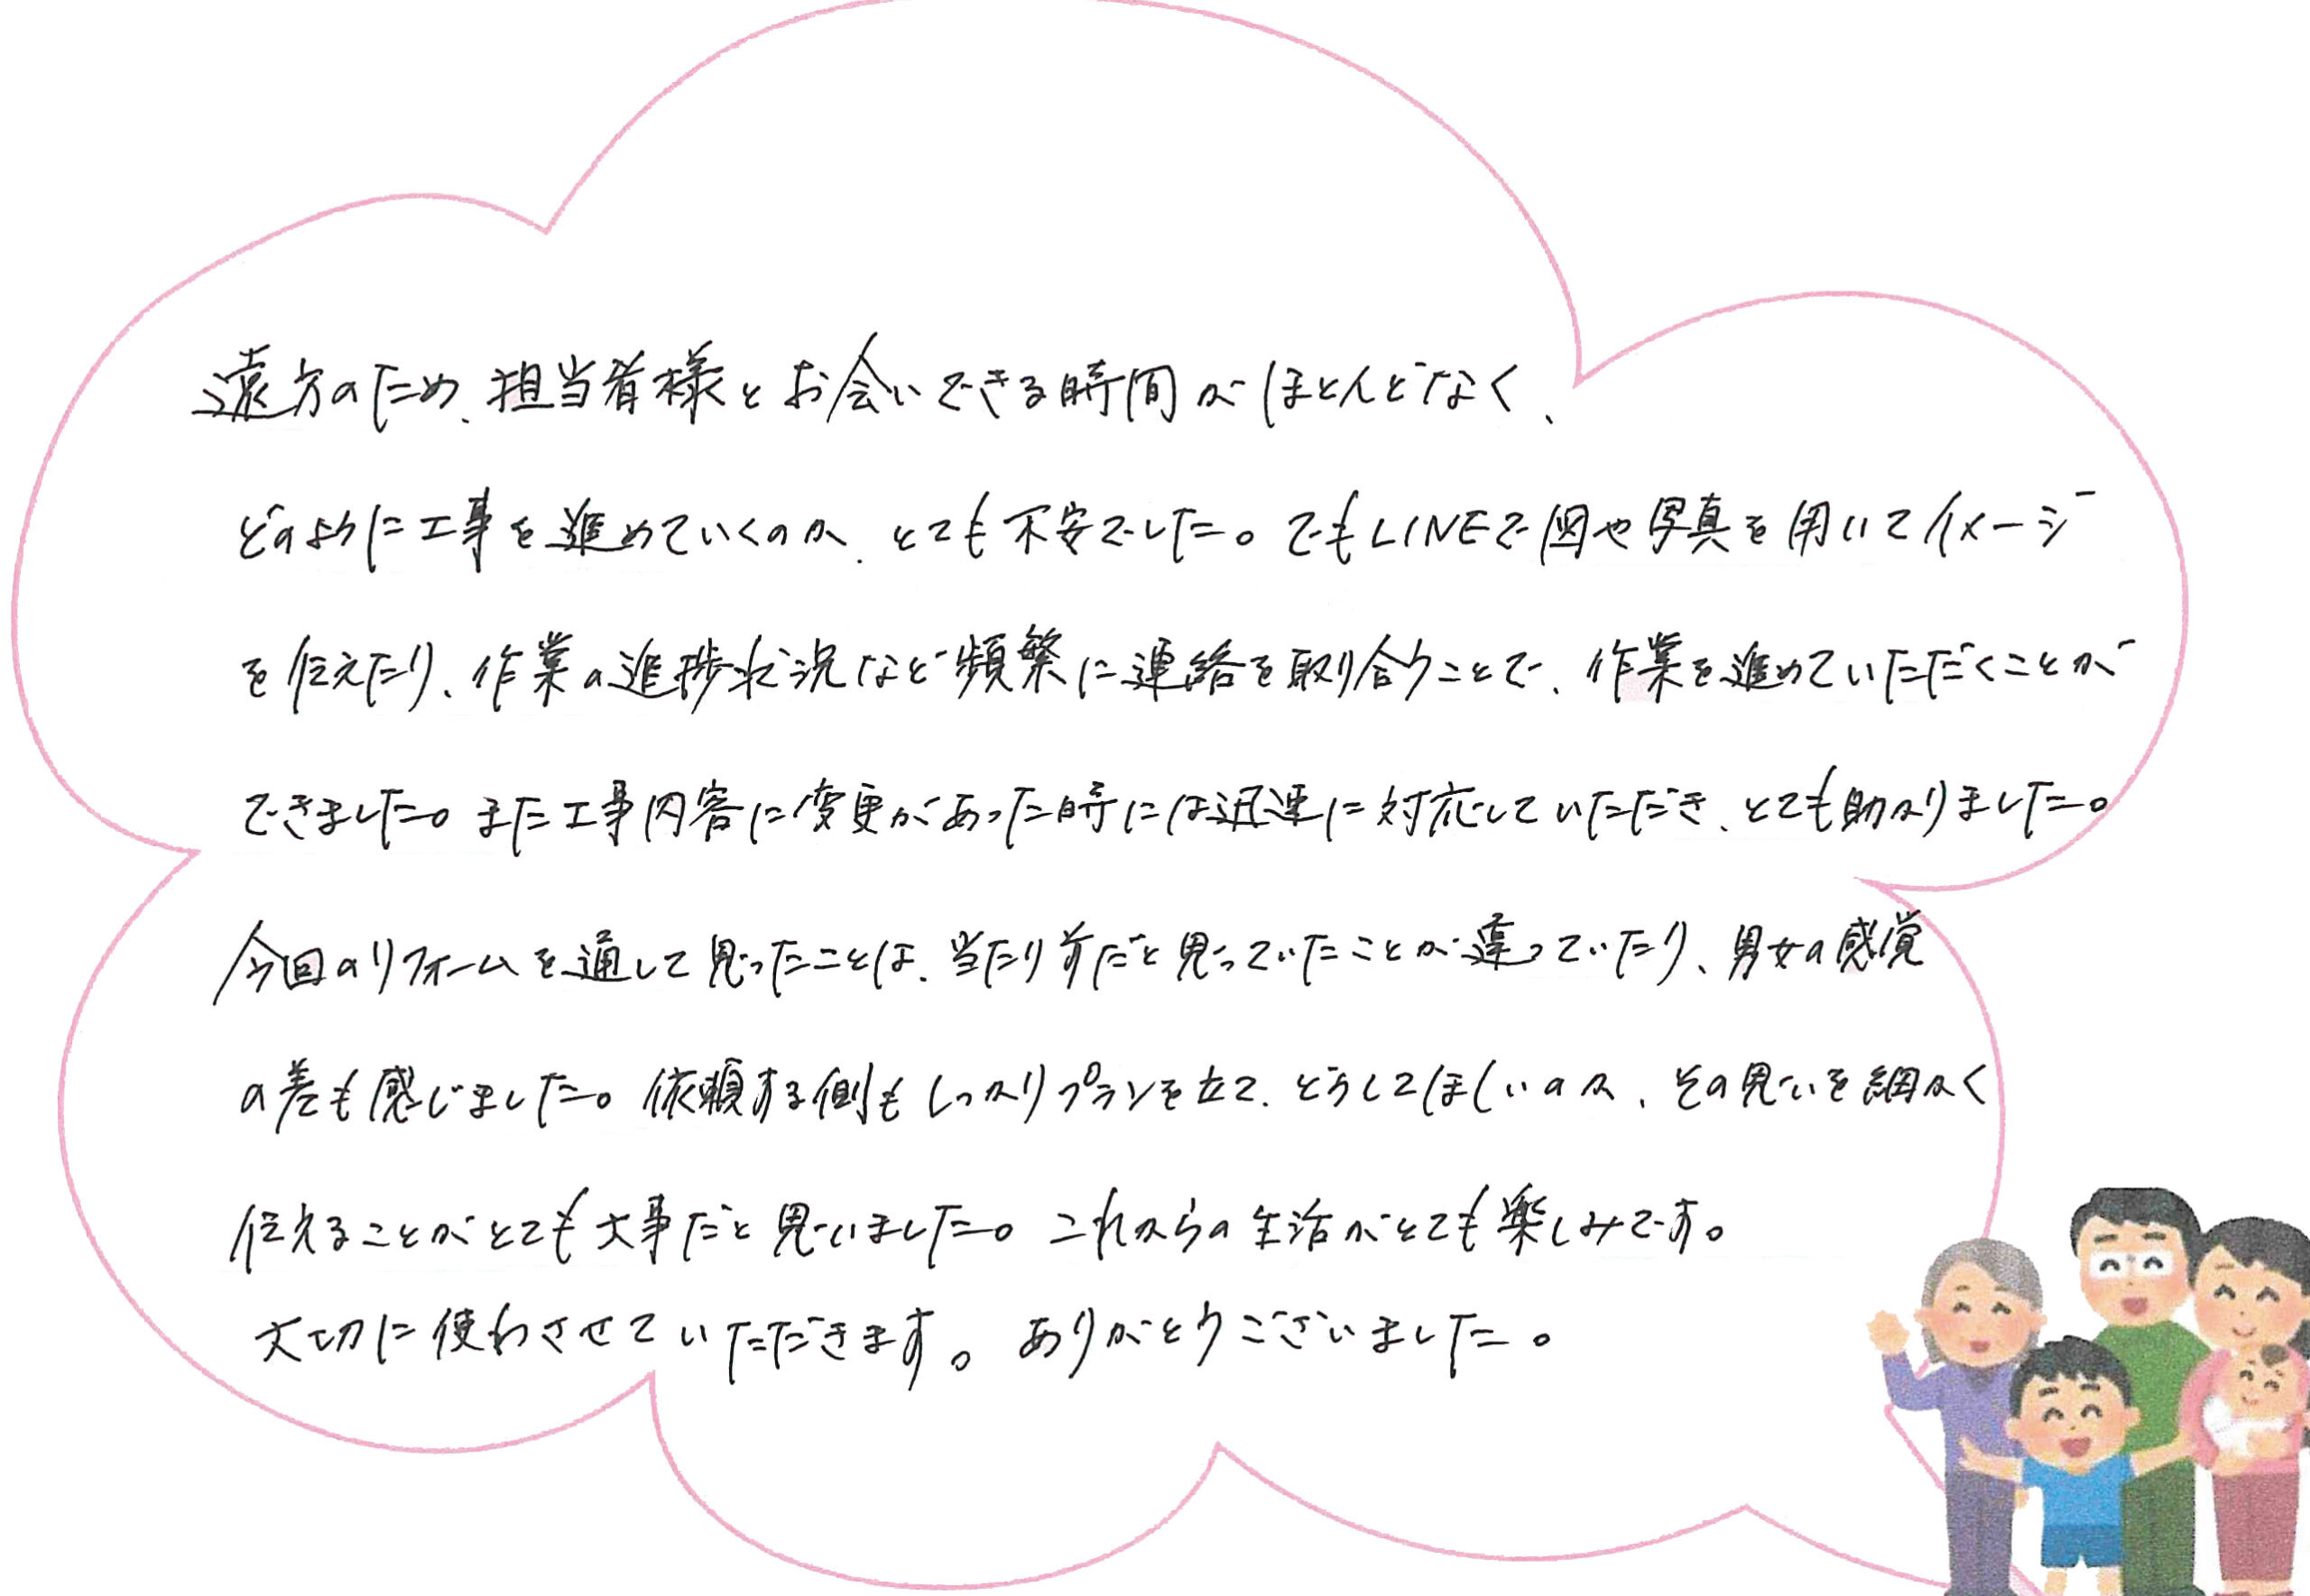 遠方のため、担当者様とお会いできる時間がほとんどなく、
どのように工事を進めていくのか、とても不安でした。でもLINEで図や写真を用いてイメージ
を伝えたり、作業の進捗状況など頻繁に連絡を取り合うことで、作業を進めていただくことが
できました。また工事内容に変更があった時には迅速に対応していただき、とても助かりました。
今回のリフォームを通して思ったことは、当たり前だと思っていたことが違っていたり、男女の感覚
の差も感じました。依頼する側もしっかりプランを立て、どうしてほしいのか、その思いを細かく
伝えることがとても大事だと思いました。これからの生活がとても楽しみです。
大切に使わさせていただきます。ありがとうございました。